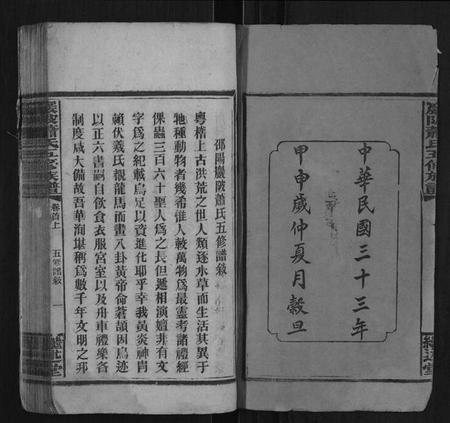 中華民國三十三年
甲申歲仲夏月穀旦
邵陽巖陂蕭氏五修譜敘
粵稽上古洪荒之世人類逐水草而生活其異于
牠種動物者幾希惟人較萬物爲最靈考諸禮經
倮蟲三百六十聖人爲之長但遞相演嬗非有文
字爲之紀載烏足以資進化耶乎幸我黃炎神胄
賴伏羲氏覩龍馬而畫八卦黃帝命蒼頡因鳥迹
以正六書嗣自飲食衣服宮室以及舟車禮樂各
制度咸大備故吾華洵堪稱爲數千年文明之邦
巖陂蕭氏五修族譜
卷首上
五修譜敘